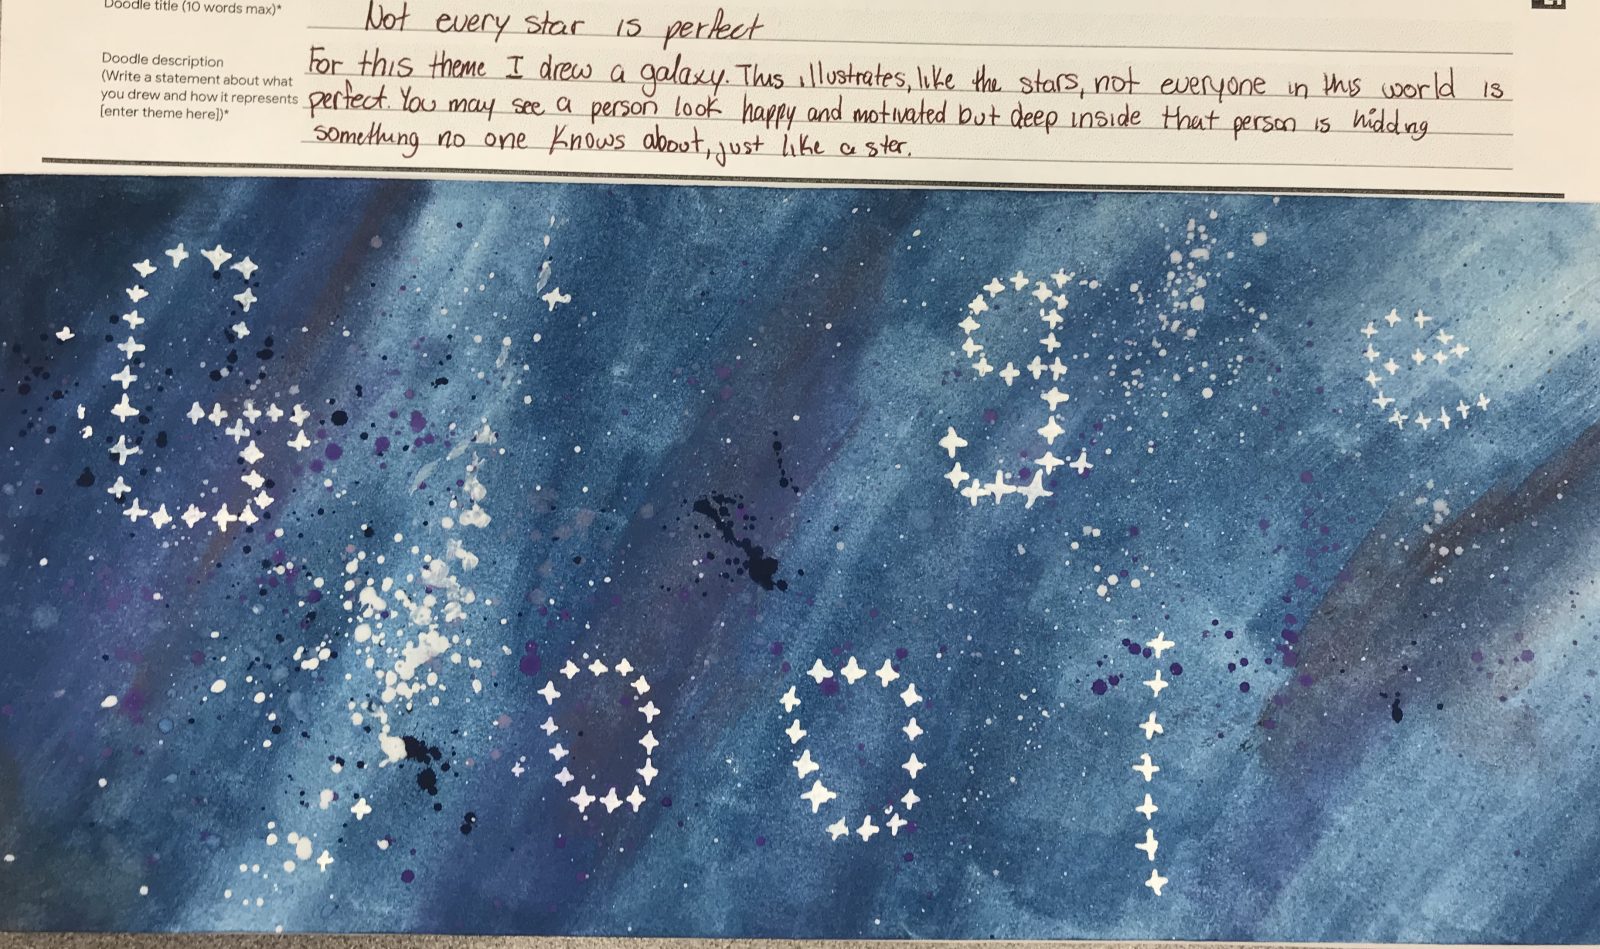 Doodle title (10 words max)*
Not every star is perfect
Doodle description
(Write a statement about what
you drew and how it represents
[enter theme here])*
For this theme I drew a galaxy. This illustrates, like the stars, not everyone in this world is
perfect. You may see a person look happy and motivated but deep inside that person is hidding
something no one knows about, just like a ster.
G g e
o o l